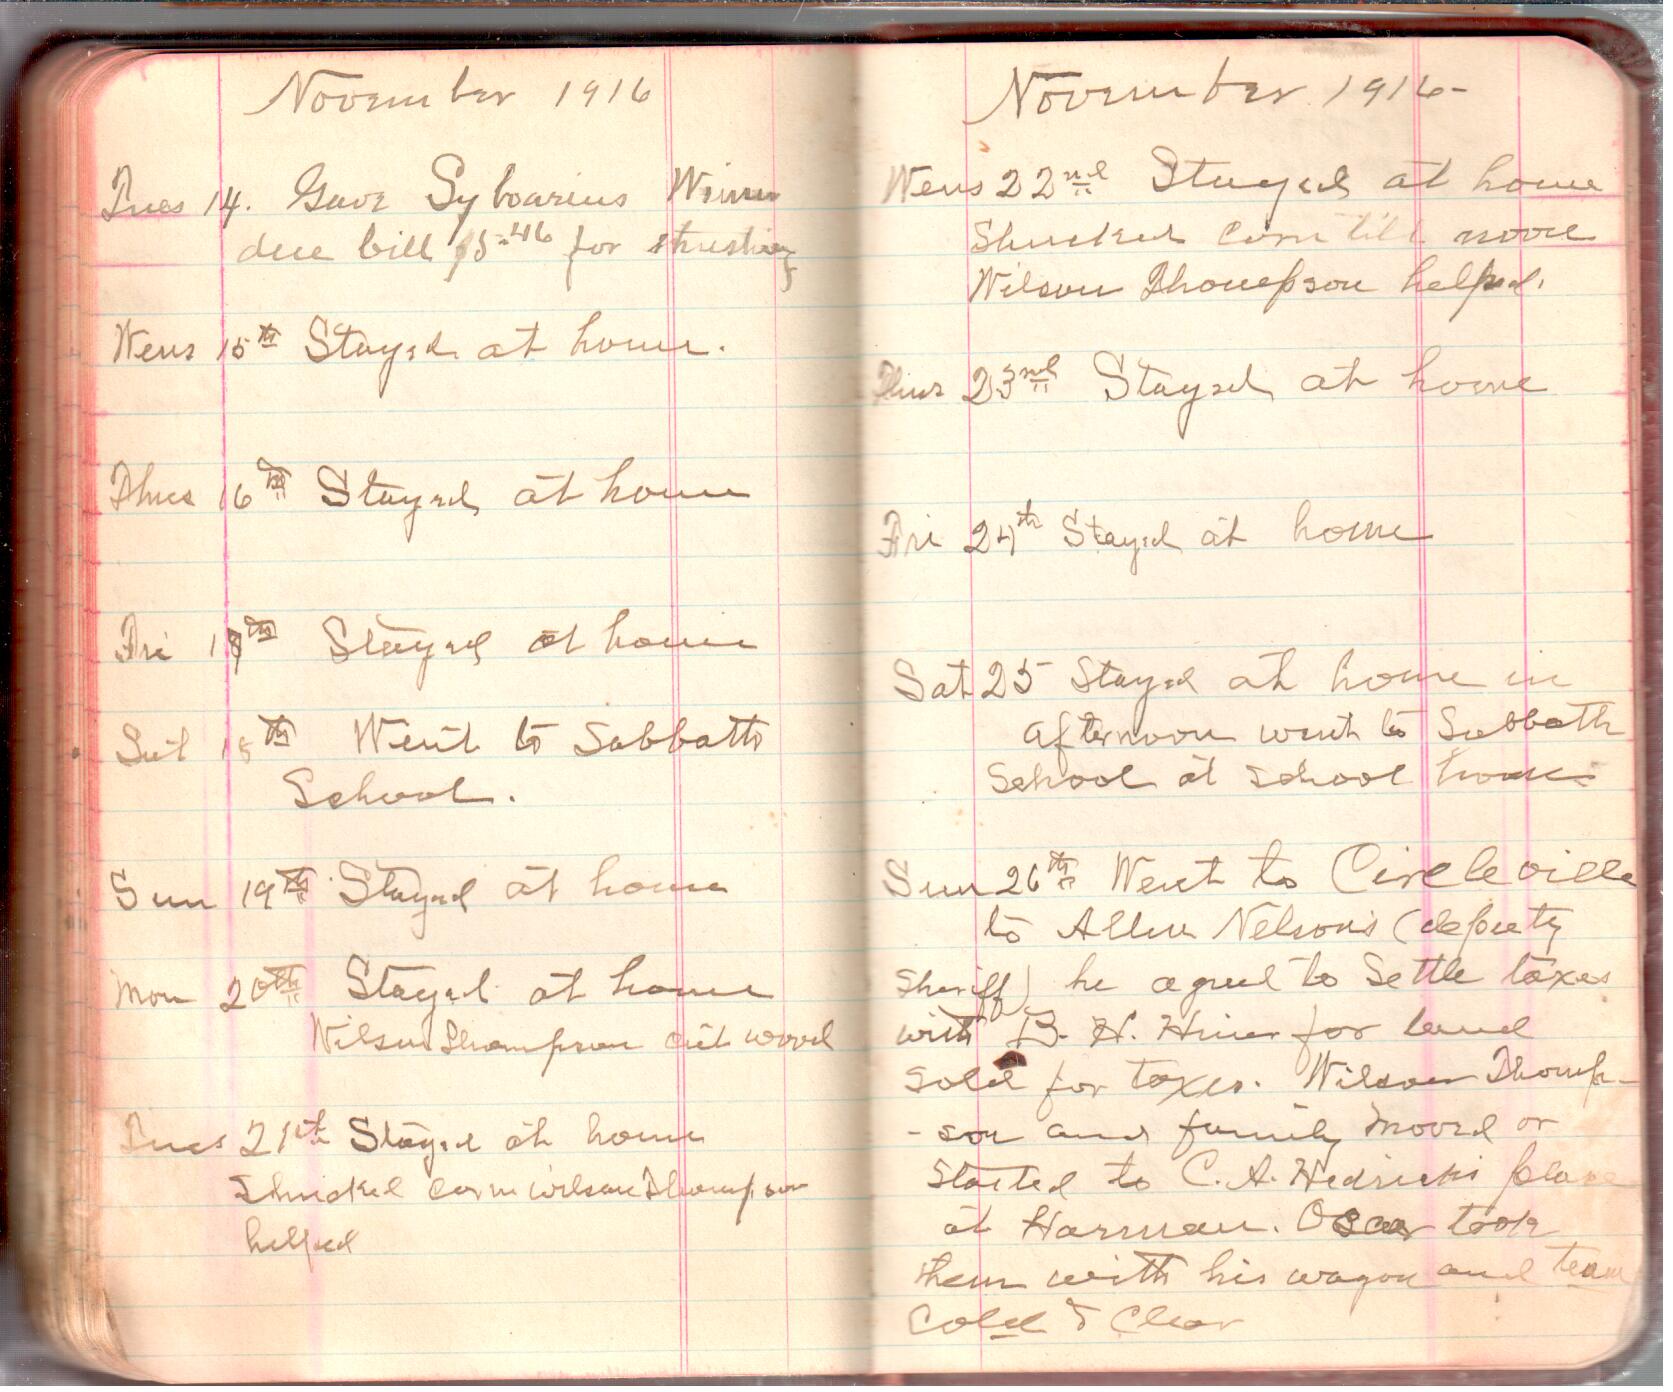 November 1916
Tues 14. Gave Wimer
due bill 15.46 for
Wens 15th Stayed at home.
Thus 16th Stayed at home
Fri 17th Stayed at home
Sat 18th Went to Sabbath
School.
Sun 19th Stayed at home
Mon 20th Stayed at home
Wilson Thompson cut wood
Tues 21st Stayed at home
Shucked corn Wilson Thompson
helped
November 1916-
Wens 22nd Stayed at home
Shucked corn till noon
Wilson Thompson helped.
Thus 23nd Stayed at home
Fri 24th Stayed at home
Sat 25 Stayed at home in
afternoon went to Sabbath
School at school house
Sun 26th Went to Circleville
to Allen Nelson's (deputy
Sheriff) he agreed to Settle taxes
with B. H. Hiner for land
sold for taxes. Wilson Thomp-
-son and family moved or
started to C. A. Hedricks place
at Harman. Oscar took
them with his wagon and team
Cold & Clear